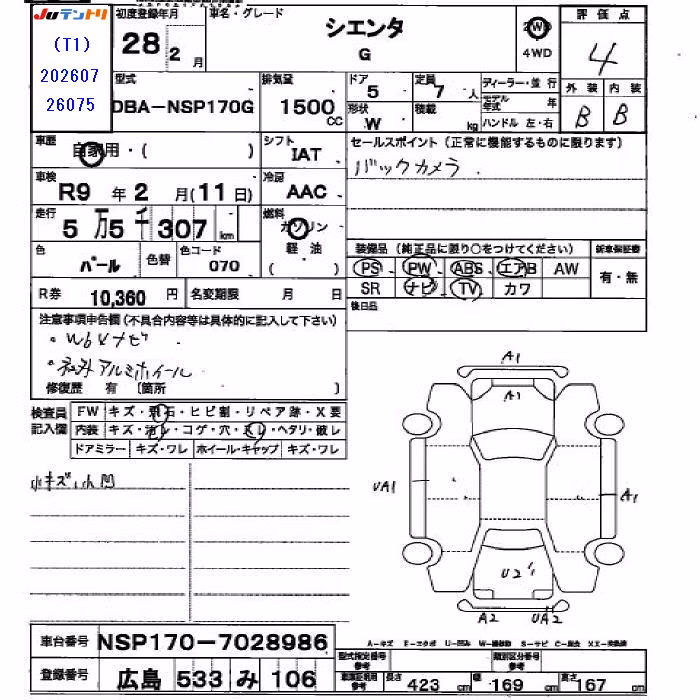 Juテントリ
(T1)
202607
26075
初度登録年月
28年2月
車名・グレード
シエンタ
G
2WD
4WD
評価点
4
型式
DBA-NSP170G
排気量
1500cc
ドア
5
定員
7人
形状
W
積載
kg
ディーラー・並行
モデル年式 年
ハンドル 左・右
外装 内装
B B
車歴
自家用・( )
シフト
IAT
セールスポイント(正常に機能するものに限ります)
バックカメラ
車検
R9年2月(11日)
冷房
AAC
走行
5万5千307km
燃料
ガソリン
軽油
( )
色
パール
色替
色コード
070
装備品(純正品に限り○をつけてください)
新車保証書
PS PW ABS エアB AW
SR ナビ TV カワ
有・無
R券 10,360円
名変期限 月 日
後日品
注意事項申告欄(不具合内容等は具体的に記入して下さい)
・W6Vナビ
・社外アルミホイール
修復歴 有 〔箇所 〕
検査員
記入欄
FW キズ・飛石・ヒビ割・リペア跡・X要
内装 キズ・汚レ・コゲ・穴・スレ・ヘタリ・破レ
ドアミラー キズ・ワレ ホイール・キャップ キズ・ワレ
小キズ、小凹
A1
A1
UA1
A1
U2
A2
UA2
車台番号 NSP170-7028986
A-キズ E-エクボ U-凹み
型式指定番号
参考
類別区分番号
参考
登録番号 広島 533 み 106
車庫証明用
参考
長さ 423cm
幅 169cm
高さ 167cm